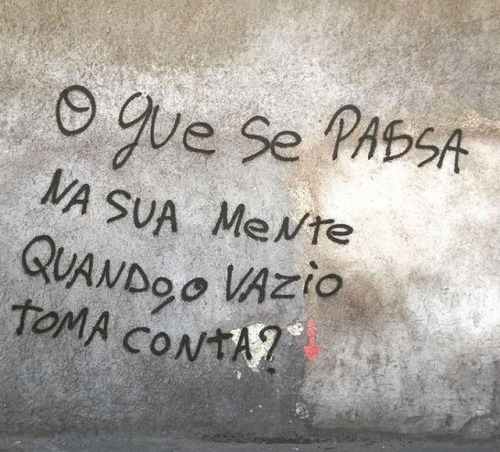 O que se PASSA
NA SUA MeNte
QUANDO, O VAZIO
TOMA CONTA?